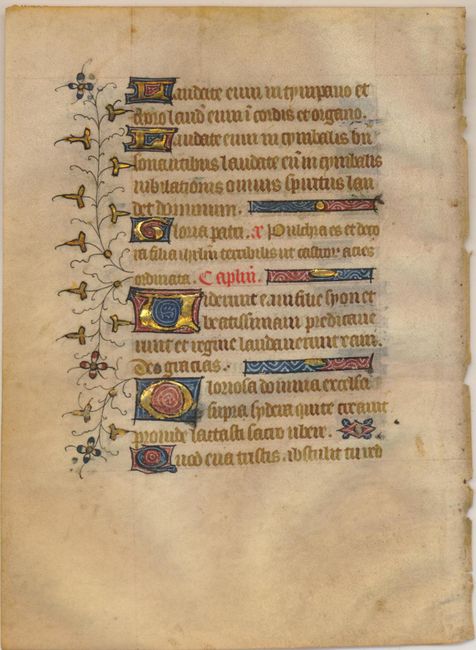 Laudate eum in tympano et
choro laud eum i cordis et organo.
Laudate eum in cymbalis bn
sonantibus laudate eū in cymbalis
iubilationis omnis spiritus lau
det dominum.
Gloria patri. a Pulchra es et deco
ra filia ihrlm terribilis ut castror acies
ordinata. Caplm.
Viderunt eam filie syon et
beatissimam predicave
runt et regine laudaverunt eam.
Deo gracias.
Gloriosa domina excelsa
supra sydera qui te creavit
provide lactasti sacro ubere.
Quod eua tristis abstulit tu red